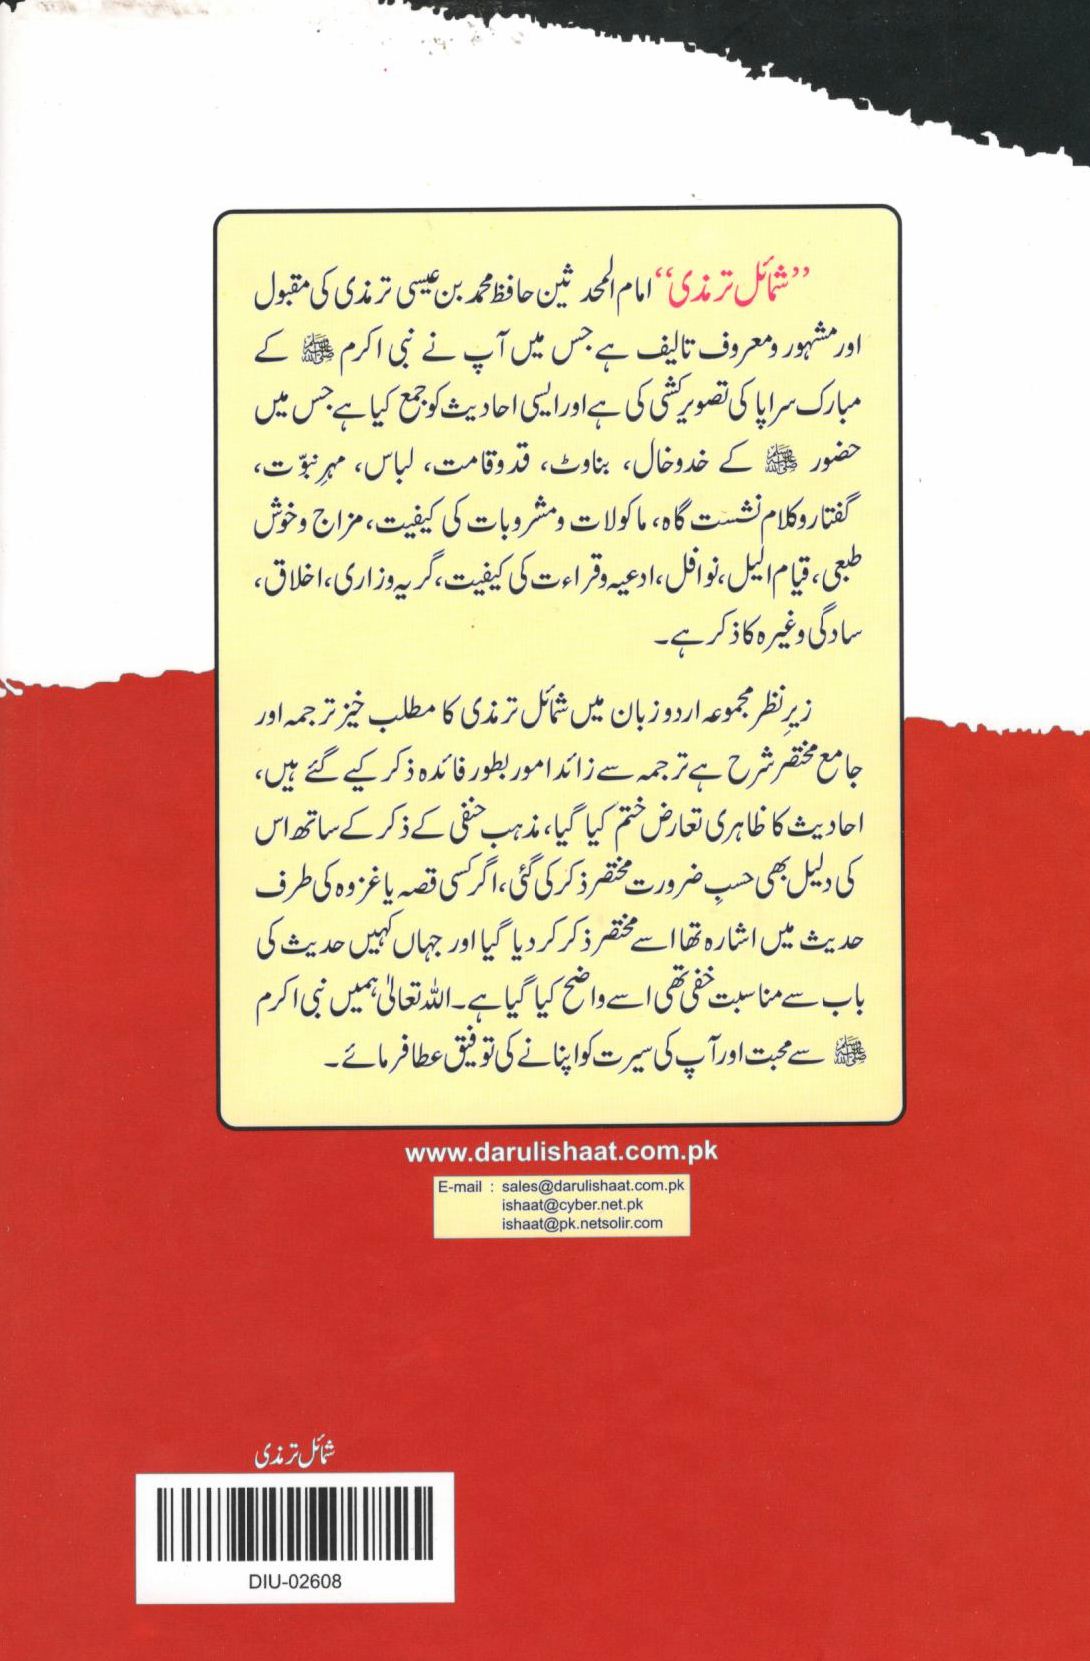 ”شمائل ترمذی“ امام المحدثین حافظ محمد بن عیسی ترمذی کی مقبول
اور مشہور و معروف تالیف ہے جس میں آپ نے نبی اکرم ﷺ کے
مبارک سراپا کی تصویر کشی کی ہے اور ایسی احادیث کو جمع کیا ہے جس میں
حضور ﷺ کے خدوخال، بناوٹ، قد و قامت، لباس، مہرِ نبوّت،
گفتار و کلام نشست گاہ، ماکولات و مشروبات کی کیفیت، مزاج و خوش
طبعی، قیام الیل، نوافل، ادعیہ و قراءت کی کیفیت، گریہ وزاری، اخلاق،
سادگی وغیرہ کا ذکر ہے۔
زیرِ نظر مجموعہ اردو زبان میں شمائل ترمذی کا مطلب خیز ترجمہ اور
جامع مختصر شرح ہے ترجمہ سے زائد امور بطور فائدہ ذکر کیے گئے ہیں،
احادیث کا ظاہری تعارض ختم کیا گیا، مذہب حنفی کے ذکر کے ساتھ اس
کی دلیل بھی حسبِ ضرورت مختصر ذکر کی گئی، اگر کسی قصہ یا غزوہ کی طرف
حدیث میں اشارہ تھا اسے مختصر ذکر کر دیا گیا اور جہاں کہیں حدیث کی
باب سے مناسبت خفی تھی اسے واضح کیا گیا ہے۔ اللہ تعالیٰ ہمیں نبی اکرم
ﷺ سے محبت اور آپ کی سیرت کو اپنانے کی توفیق عطا فرمائے۔
www.darulishaat.com.pk
E-mail : sales@darulishaat.com.pk
ishaat@cyber.net.pk
ishaat@pk.netsolir.com
شمائل ترمذی
DIU-02608